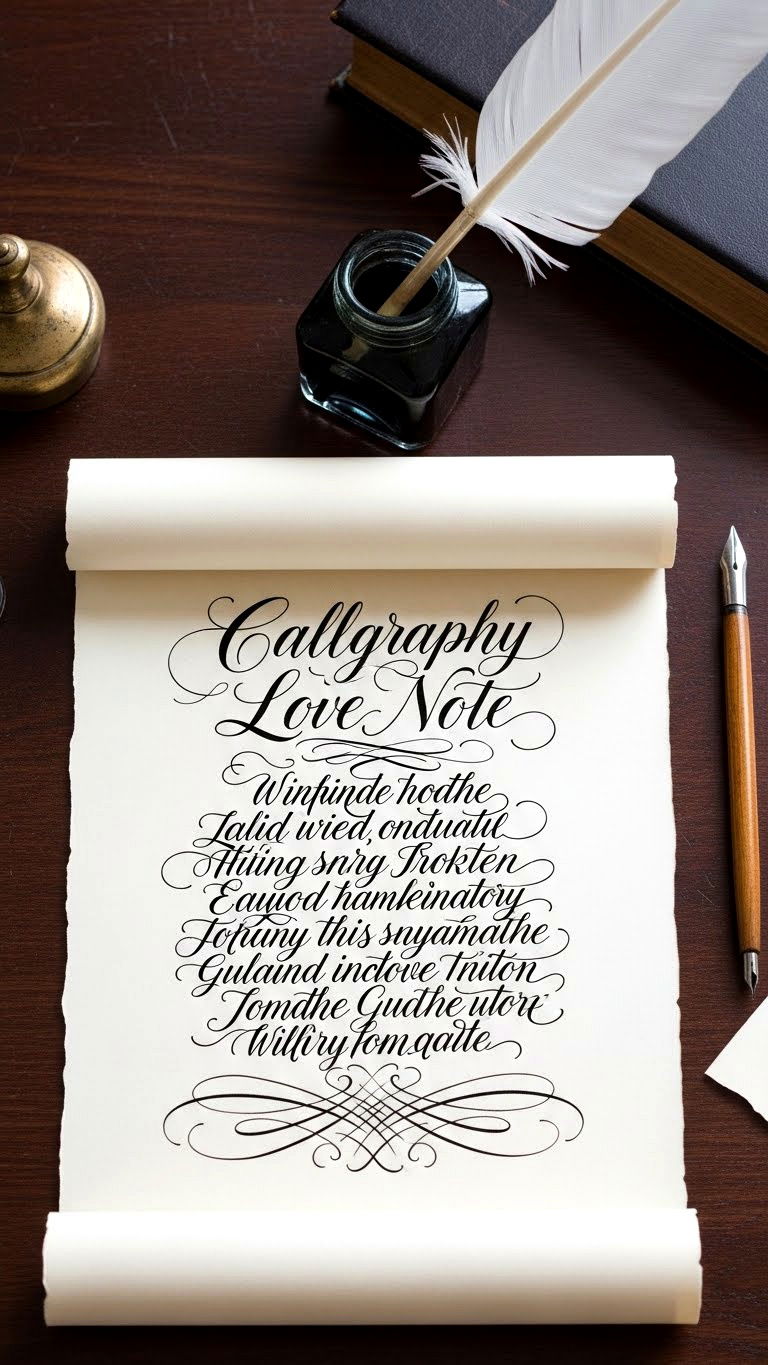 Callgraphy
Love Note
Winfinde hodhe
Lalid wied, onduatil
Htiing snrg Trokten
Eauyod hamleinatory
Topuny this snyamathe
Gulaind indove Tniton
Tomdhe Gudhe utore
Willfiry fomqatte